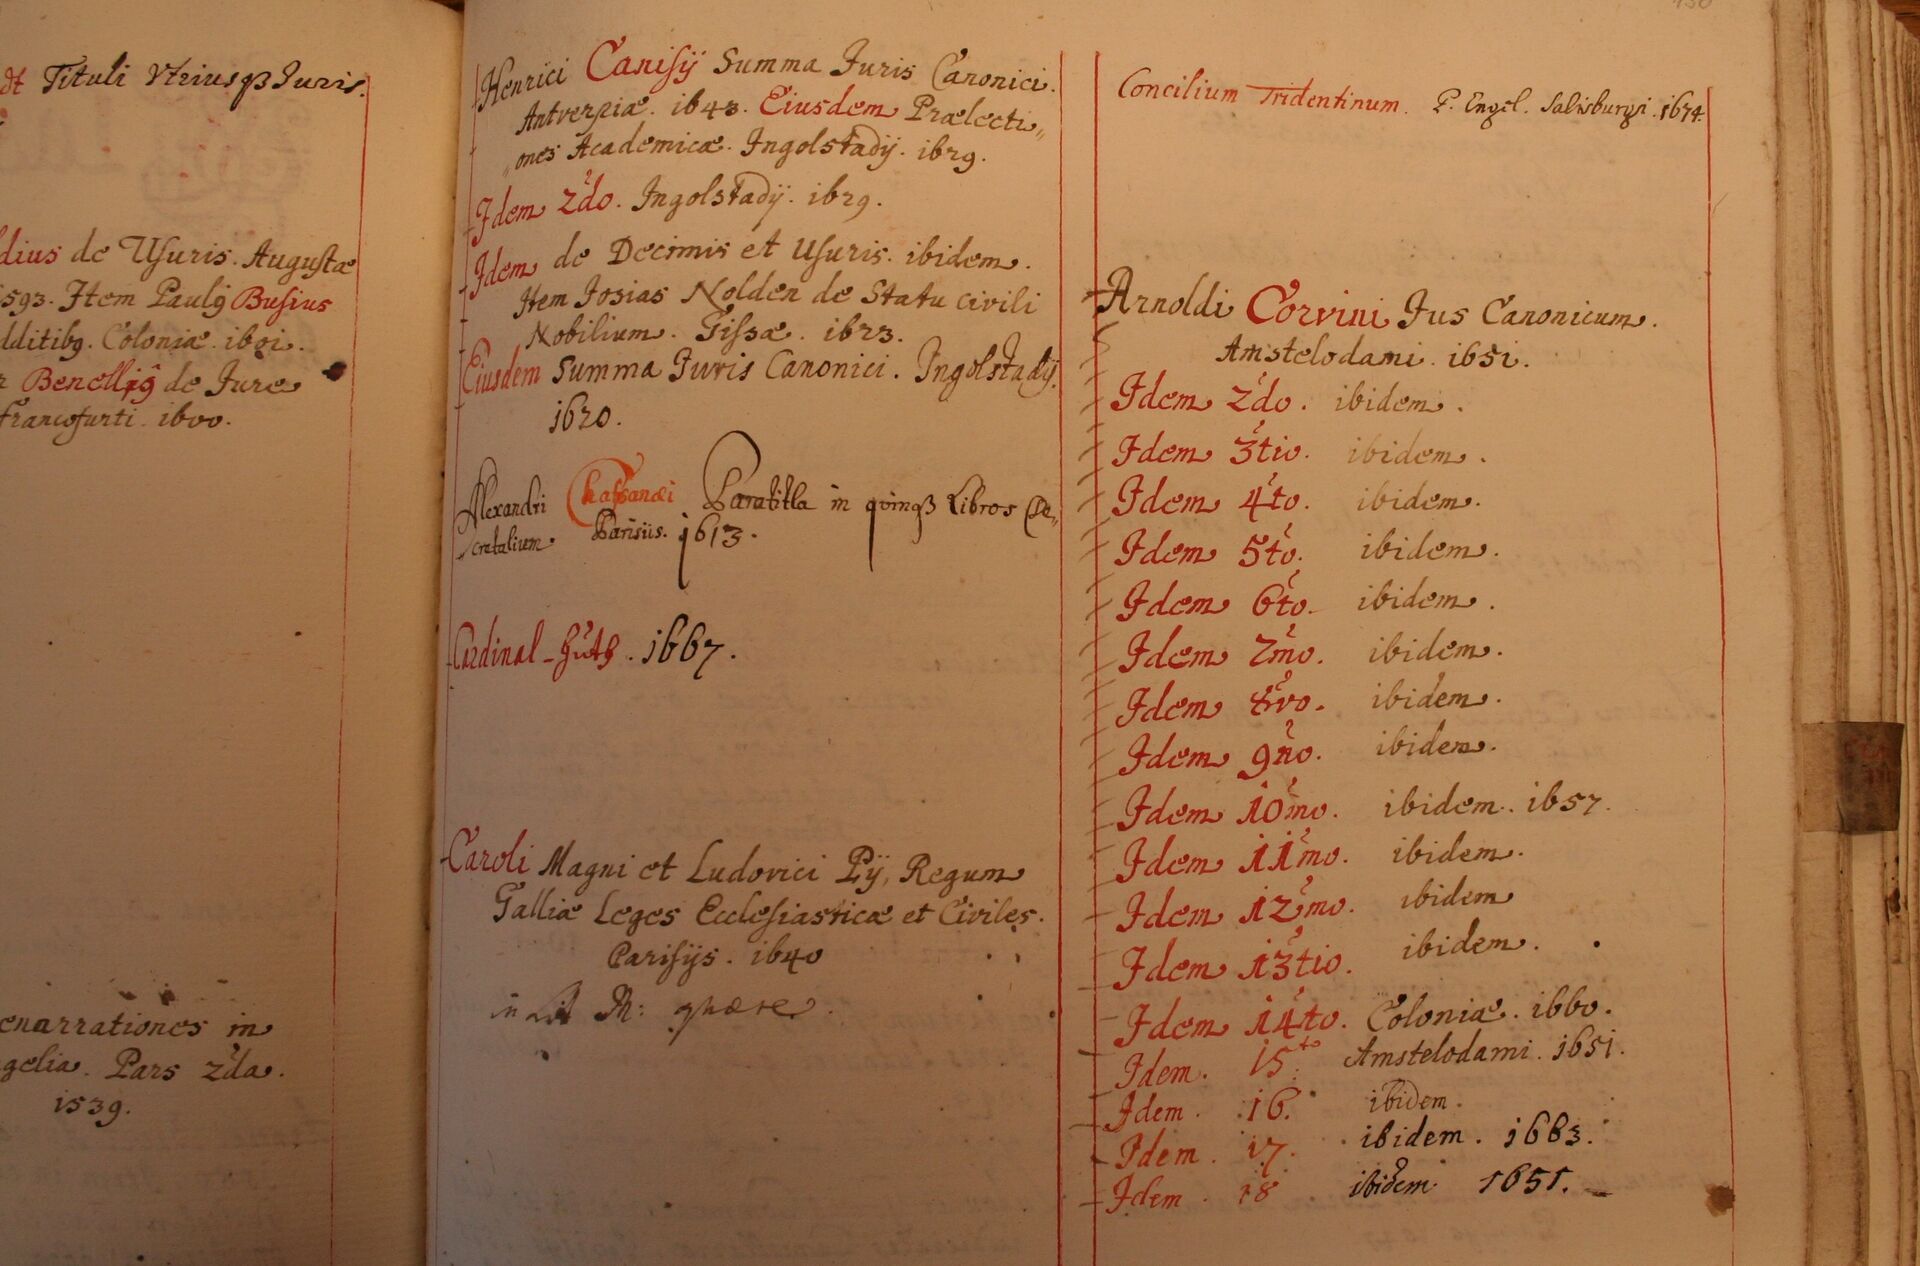 Tituli Vtriusqꝫ Juris.
de Usuris. Augustæ
593. Item Paulꝰ Busius
Coloniæ. 1601.
Benellꝰ de Jure
francofurti. 1600.
enarrationes in
gelia. Pars 2da.
1539.
Henrici Canisÿ Summa Juris Canonici.
Antverpiæ. 1643. Eiusdem Prælecti„
„ones Academicæ. Ingolstadÿ. 1629.
Idem 2do. Ingolstadÿ. 1629.
Idem de Decimis et Usuris. ibidem.
Item Josias Nolden de Statu civili
Nobilium. Gissæ. 1623.
Eiusdem Summa Juris Canonici. Ingolstadÿ.
1620.
Alexandri Chassanæi Paratitla in quinqꝫ Libros De„
„cretalium. Parisiis. 1613.
Cardinal-Hüth. 1667.
Caroli Magni et Ludovici Pÿ, Regum
Galliæ Leges Ecclesiasticæ et Civiles.
Parisÿs. 1640
in Lit M: quære.
Concilium Tridentinum. P. Engel. Salisburgi. 1674.
Arnoldi Corvini Jus Canonicum.
Amstelodami. 1651.
Idem 2do. ibidem.
Idem 3tio. ibidem.
Idem 4to. ibidem.
Idem 5to. ibidem.
Idem 6to. ibidem.
Idem 7mo. ibidem.
Idem 8vo. ibidem.
Idem 9no. ibidem.
Idem 10mo. ibidem. 1657.
Idem 11mo. ibidem.
Idem 12mo. ibidem
Idem 13tio. ibidem.
Idem 14to. Coloniæ. 1660.
Idem. 15to Amstelodami. 1651.
Idem. 16. ibidem.
Idem. 17. ibidem. 1663.
Idem. 18 ibidem 1651.